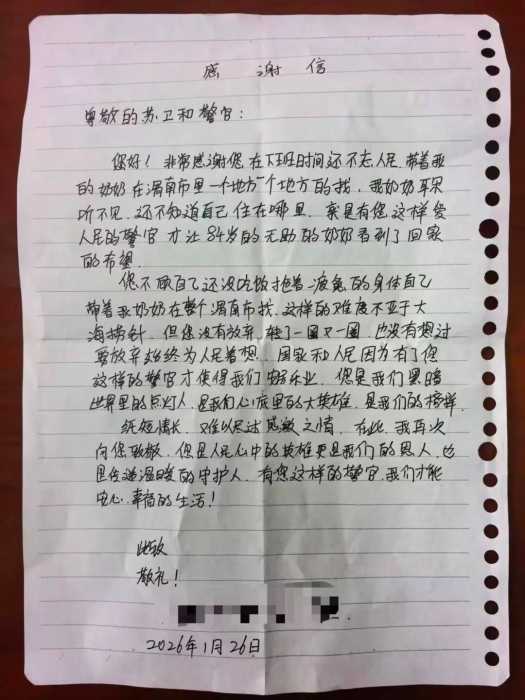 感谢信
尊敬的苏卫和警官：
您好！非常感谢您在下班时间还不忘人民,带着我
的奶奶在渭南市里一个地方一个地方的找，我奶奶耳朵
听不见，还不知道自己住在哪里，就是有您这样爱
人民的警官才让84岁的无助的奶奶看到了回家
的希望。
您不顾自己还没吃饭拖着疲惫的身体自己
带着我奶奶在整个渭南市找，这样的难度不亚于大
海捞针，但您没有放弃，转了一圈又一圈，也没有想过
要放弃始终为人民着想，国家和人民因为有了您
这样的警官才使得我们安居乐业，您是我们黑暗
世界里的点灯人，是我们心底里的大英雄，是我们的榜样，
纸短情长，难以尽述感激之情，在此，我再次
向您致敬，您是人民心中的英雄更是我们的恩人，也
是传递温暖的守护人，有您这样的警官，我们才能
安心、幸福的生活！
此致
敬礼！
2026年1月26日